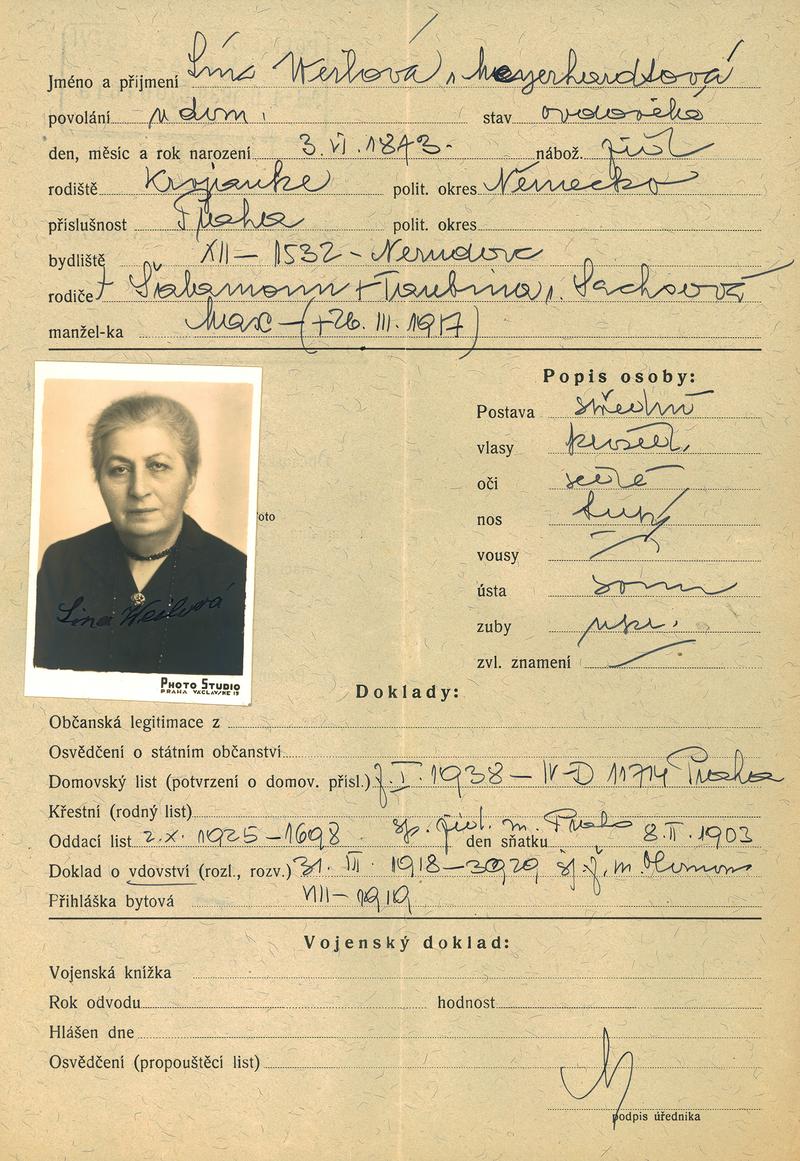 Jméno a příjmení Lína Weilová, Meyerhardtová
povolání v dom. stav ovdovělá
den, měsíc a rok narození 3. VI. 1873. nábož. žid.
rodiště Krojanke polit. okres Německo
příslušnost Praha polit. okres
bydliště XII — 1532 - Nerudova
rodiče † Taubina, Sachsová
manžel-ka Max — († 26. III. 1917)
Popis osoby:
Postava střední
vlasy prošed.
oči šedé
nos tupý
vousy
ústa
zuby
zvl. znamení
oto
Lina Weilová
PHOTO STUDIO
PRAHA VÁCLAVSKÉ 19
Doklady:
Občanská legitimace z
Osvědčení o státním občanství
Domovský list (potvrzení o domov. přísl.) I. 1938 — IV-D 11714 Praha
Křestní (rodný list)
Oddací list 2. X. 1925 - 1698 žid. m. Praha den sňatku 8. II. 1903
Doklad o vdovství (rozl., rozv.) 31. III. 1918 — m. Olomouc
Přihláška bytová VIII — 1919
Vojenský doklad:
Vojenská knížka
Rok odvodu hodnost
Hlášen dne
Osvědčení (propouštěcí list)
podpis úředníka